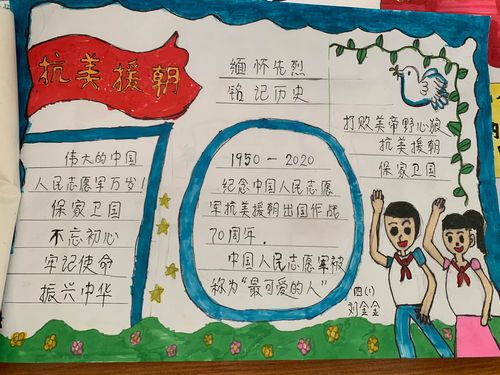 抗美援朝
缅怀先烈
铭记历史
打败美帝野心狼
抗美援朝
保家卫国
伟大的中国
人民志愿军万岁!
保家卫国
不忘初心
牢记使命
振兴中华
1950-2020
纪念中国人民志愿
军抗美援朝出国作战
70周年.
中国人民志愿军被
称为“最可爱的人”
四(1)
刘金金